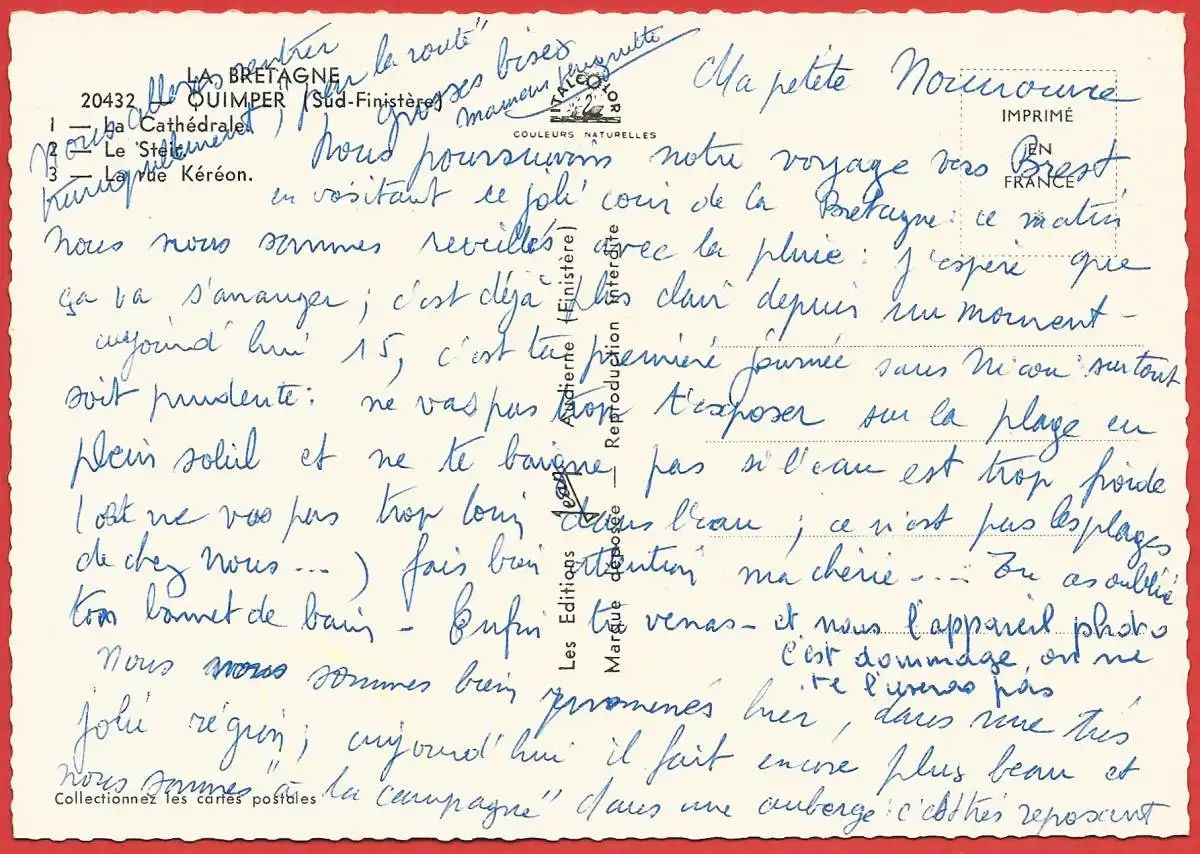 LA BRETAGNE
20432 — QUIMPER (Sud-Finistère)
1 — La Cathédrale.
2 — Le Steir.
3 — La rue Kéréon.
ITALCOLOR
COULEURS NATURELLES
IMPRIMÉ
EN
FRANCE
Les Editions Jean Audierne (Finistère)
Marque déposée — Reproduction interdite
Collectionnez les cartes postales
Ma petite Nounoune
Nous poursuivons notre voyage vers Brest
en visitant ce joli coin de la Bretagne : ce matin
nous nous sommes reveillés avec la pluie : j'espère que
ça va s'arranger ; c'est déjà plus clair depuis un moment -
aujourd'hui 15, c'est ta première journée sans Nicou : surtout
soit prudente : ne vas pas trop t'exposer sur la plage en
plein soleil et ne te baigne pas si l'eau est trop froide
(et ne vas pas trop loin dans l'eau ; ce n'est pas les plages
de chez nous ... ) fais bien attention ma chérie ... Tu as oublié
ton bonnet de bain - Enfin tu verras - et nous l'appareil photo
c'est dommage, on ne
te l'useras pas
Nous nous sommes bien promenés hier, dans une très
jolie région ; aujourd'hui il fait encore plus beau et
nous sommes "à la campagne" dans une auberge : c'est très reposant
Nous allons rentrer
tranquillement, par la route"
grosses bises
maman